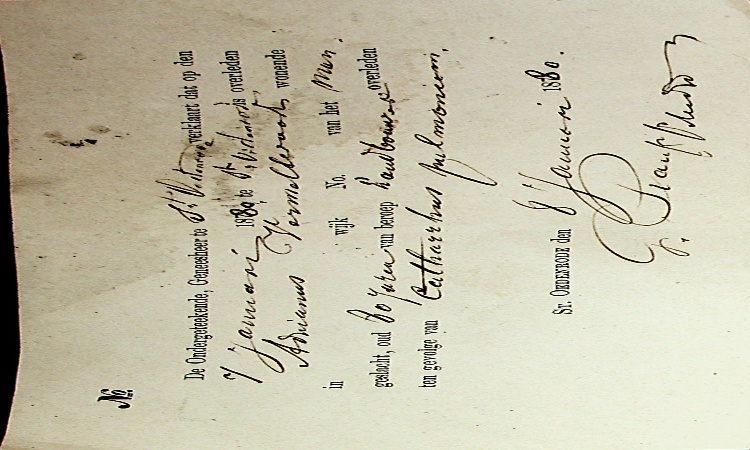 No.
De Ondergeteekende, Geneesheer te St. Oedenrode verklaart dat op den
7 Januari 1880 te St. Oedenrode is overleden
Adrianus Vermelteradt wonende
in wijk No. van het man.
geslacht, oud 80 jaren van beroep Landbouwer overleden
ten gevolge van Catharrhus pulmonium.
St. Oedenrode den 8 Januari 1880.